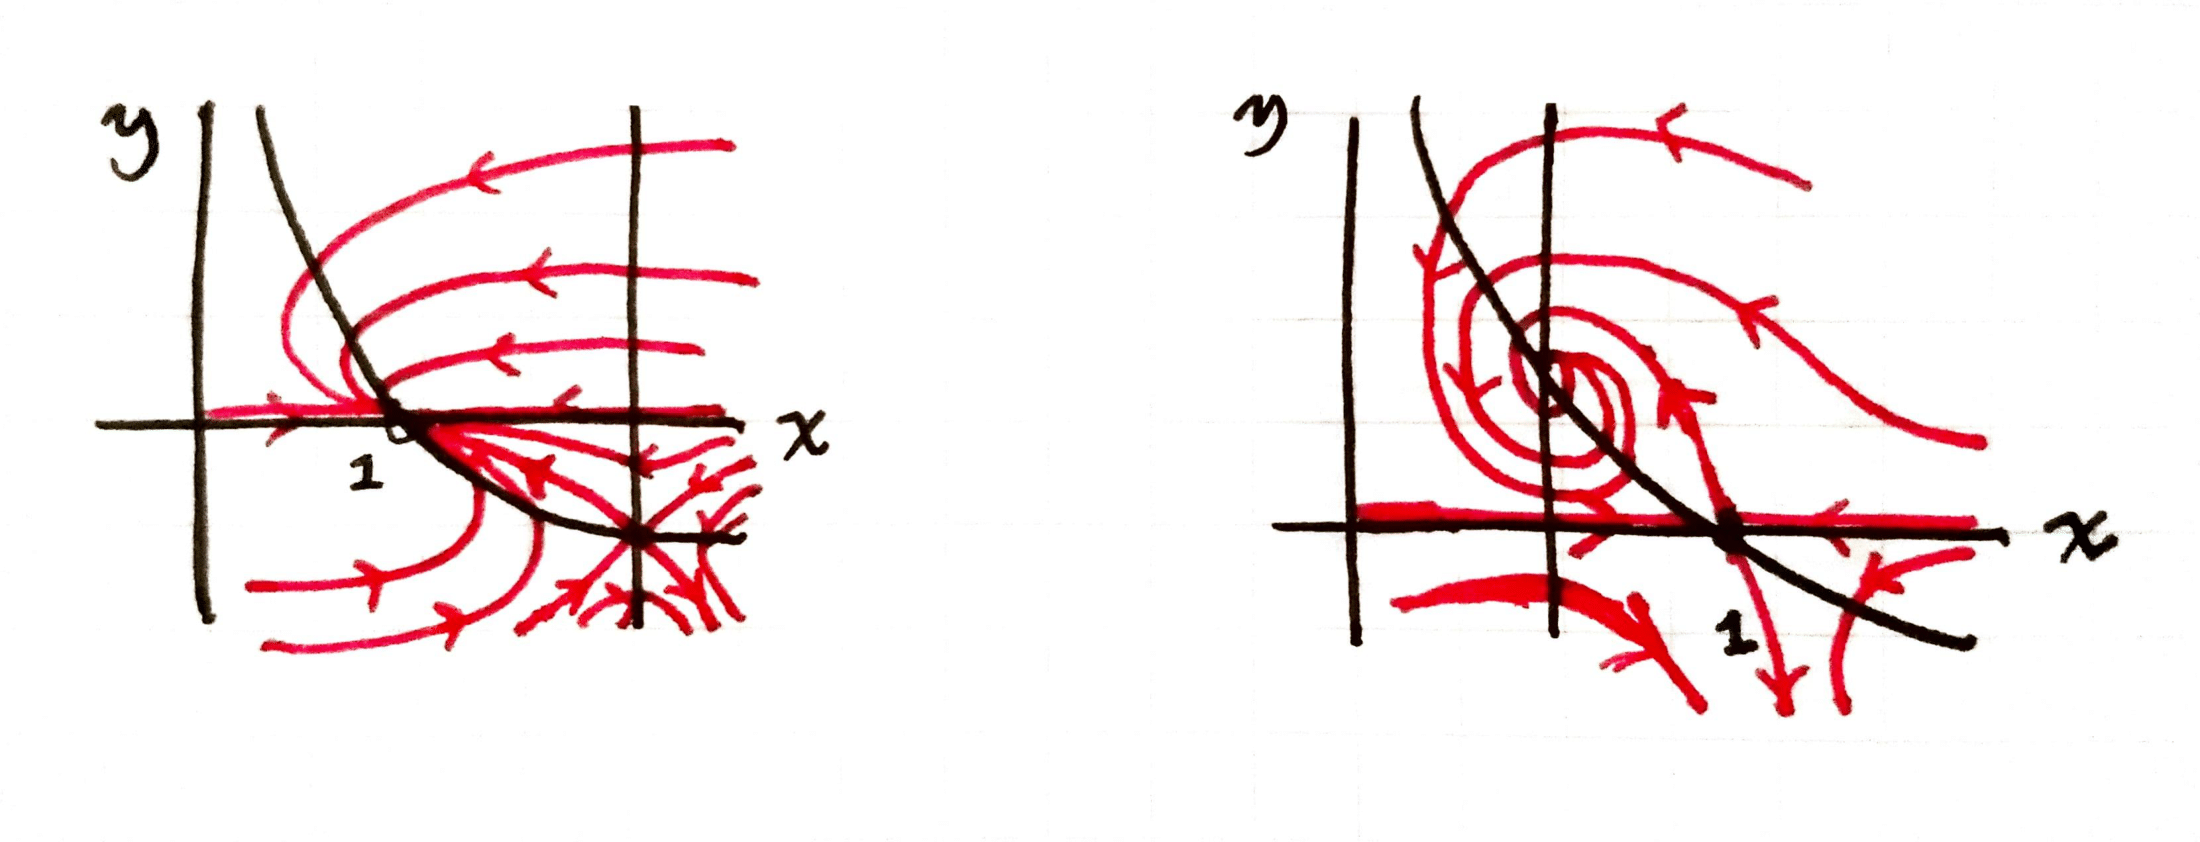 y
x
1
y
x
1